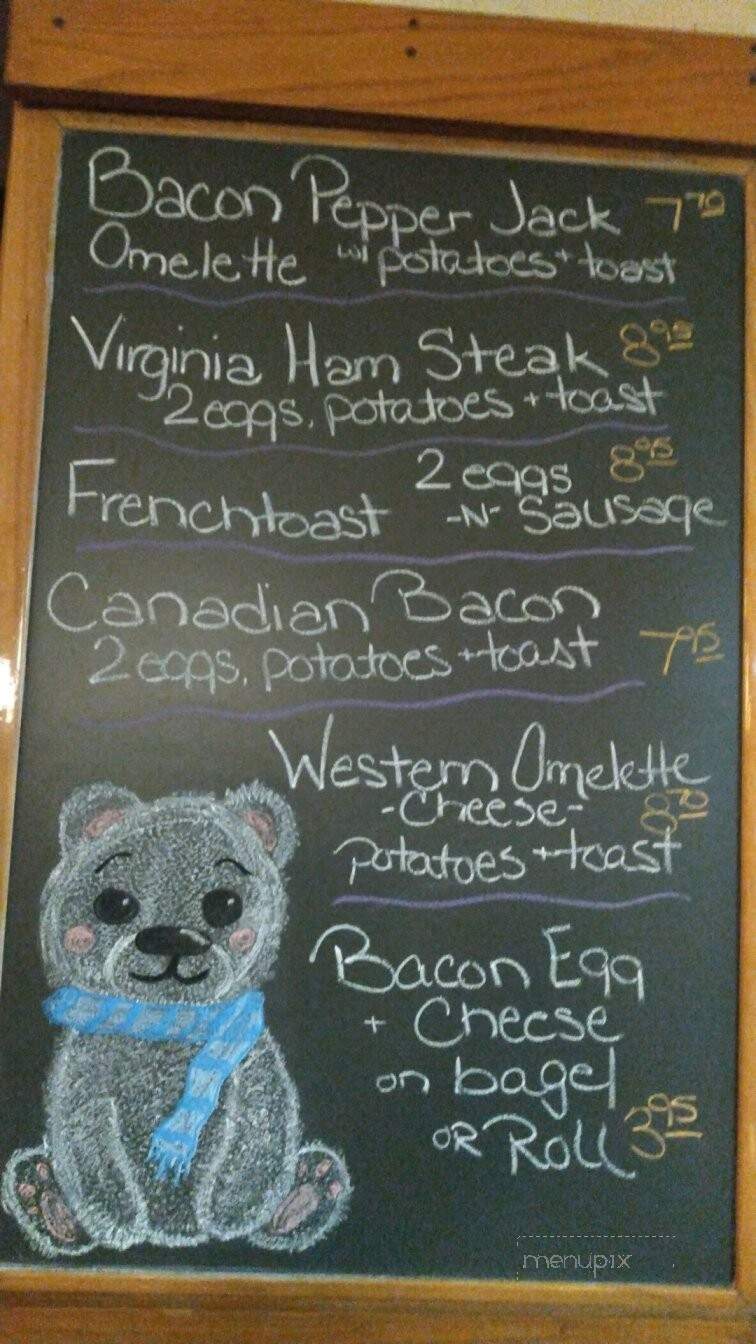 Bacon Pepper Jack 7.70
Omelette w/ potatoes + toast
Virginia Ham Steak 8.95
2 eggs, potatoes + toast
2 eggs 8.95
Frenchtoast -N- Sausage
Canadian Bacon
2 eggs, potatoes + toast 7.95
Western Omelette
-Cheese- 8.70
potatoes + toast
Bacon Egg
+ Cheese
on bagel
OR Roll 3.95
menupix